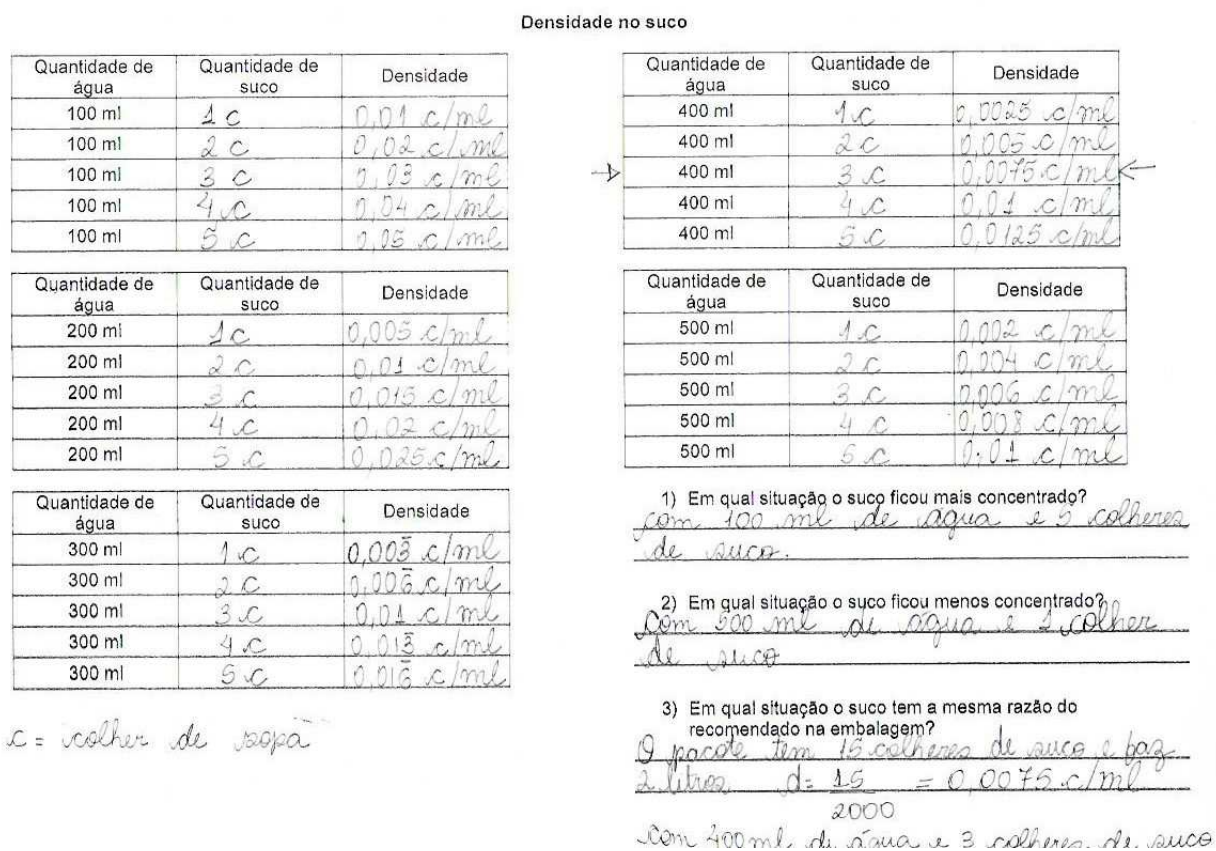 Densidade no suco
Quantidade de água Quantidade de suco Densidade
100 ml 1 c 0,01 c/ml
100 ml 2 c 0,02 c/ml
100 ml 3 c 0,03 c/ml
100 ml 4 c 0,04 c/ml
100 ml 5 c 0,05 c/ml
Quantidade de água Quantidade de suco Densidade
200 ml 1 c 0,005 c/ml
200 ml 2 c 0,01 c/ml
200 ml 3 c 0,015 c/ml
200 ml 4 c 0,02 c/ml
200 ml 5 c 0,025 c/ml
Quantidade de água Quantidade de suco Densidade
300 ml 1 c 0,003̅ c/ml
300 ml 2 c 0,006̅ c/ml
300 ml 3 c 0,01 c/ml
300 ml 4 c 0,013̅ c/ml
300 ml 5 c 0,016̅ c/ml
c = colher de sopa
Quantidade de água Quantidade de suco Densidade
400 ml 1 c 0,0025 c/ml
400 ml 2 c 0,005 c/ml
→ 400 ml 3 c 0,0075 c/ml ←
400 ml 4 c 0,01 c/ml
400 ml 5 c 0,0125 c/ml
Quantidade de água Quantidade de suco Densidade
500 ml 1 c 0,002 c/ml
500 ml 2 c 0,004 c/ml
500 ml 3 c 0,006 c/ml
500 ml 4 c 0,008 c/ml
500 ml 5 c 0,01 c/ml
1) Em qual situação o suco ficou mais concentrado?
com 100 ml de água e 5 colheres
de suco.
2) Em qual situação o suco ficou menos concentrado?
Com 500 ml de água e 1 colher
de suco
3) Em qual situação o suco tem a mesma razão do
recomendado na embalagem?
O pacote tem 15 colheres de suco e faz
2 litros d= 15/2000 = 0,0075 c/ml
com 400 ml de água e 3 colheres de suco